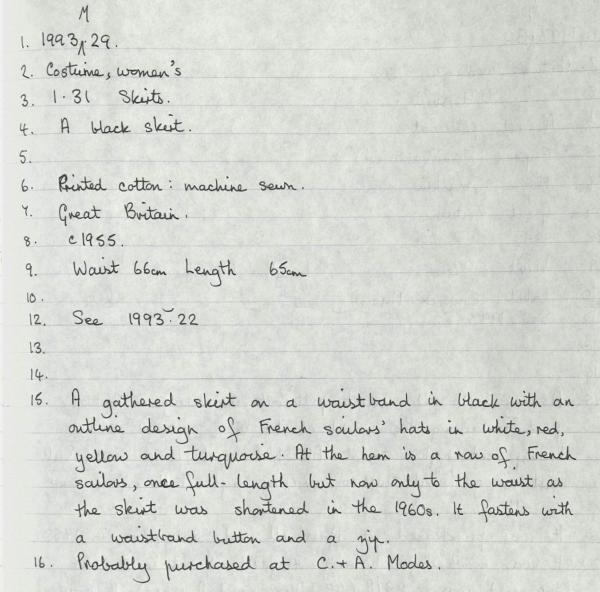 M
1. 1993 ∧ 29.
2. Costume, women's
3. 1.31 Skirts.
4. A black skirt.
5.
6. Printed cotton: machine sewn.
7. Great Britain.
8. c1955.
9. Waist 66cm Length 65cm
10.
12. See 1993.22
13.
14.
15. A gathered skirt on a waistband in black with an
outline design of French sailors' hats in white, red,
yellow and turquoise. At the hem is a row of French
sailors, once full-length but now only to the waist as
the skirt was shortened in the 1960s. It fastens with
a waistband button and a zip.
16. Probably purchased at C.+A. Modes.